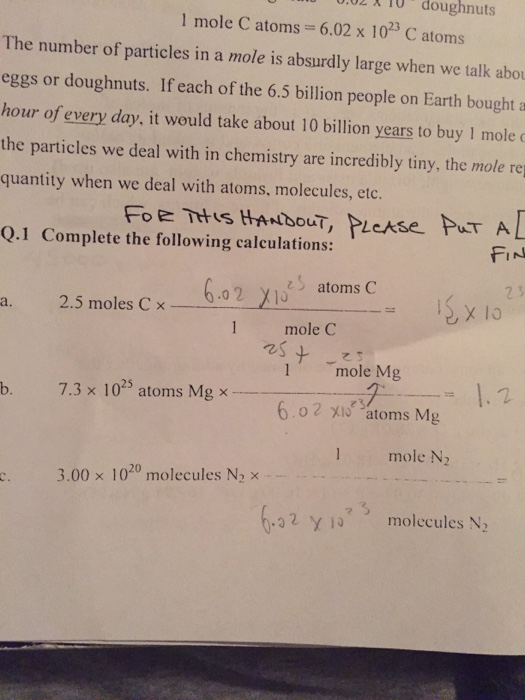 doughnuts
1 mole C atoms = 6.02 x 10²³ C atoms
The number of particles in a mole is absurdly large when we talk
eggs or doughnuts. If each of the 6.5 billion people on Earth bought a
hour of every day, it would take about 10 billion years to buy 1 mole
the particles we deal with in chemistry are incredibly tiny, the mole
quantity when we deal with atoms, molecules, etc.
FOR THIS HANDOUT, PLEASE PUT A
Q.1 Complete the following calculations:
a. 2.5 moles C x 6.02 x10²³ atoms C =
1 mole C
25 + -23
1 mole Mg
b. 7.3 × 10²⁵ atoms Mg × = 1.2
6.02 x10²³ atoms Mg
1 mole N₂
c. 3.00 × 10²⁰ molecules N₂ × =
6.02 x 10²³ molecules N₂